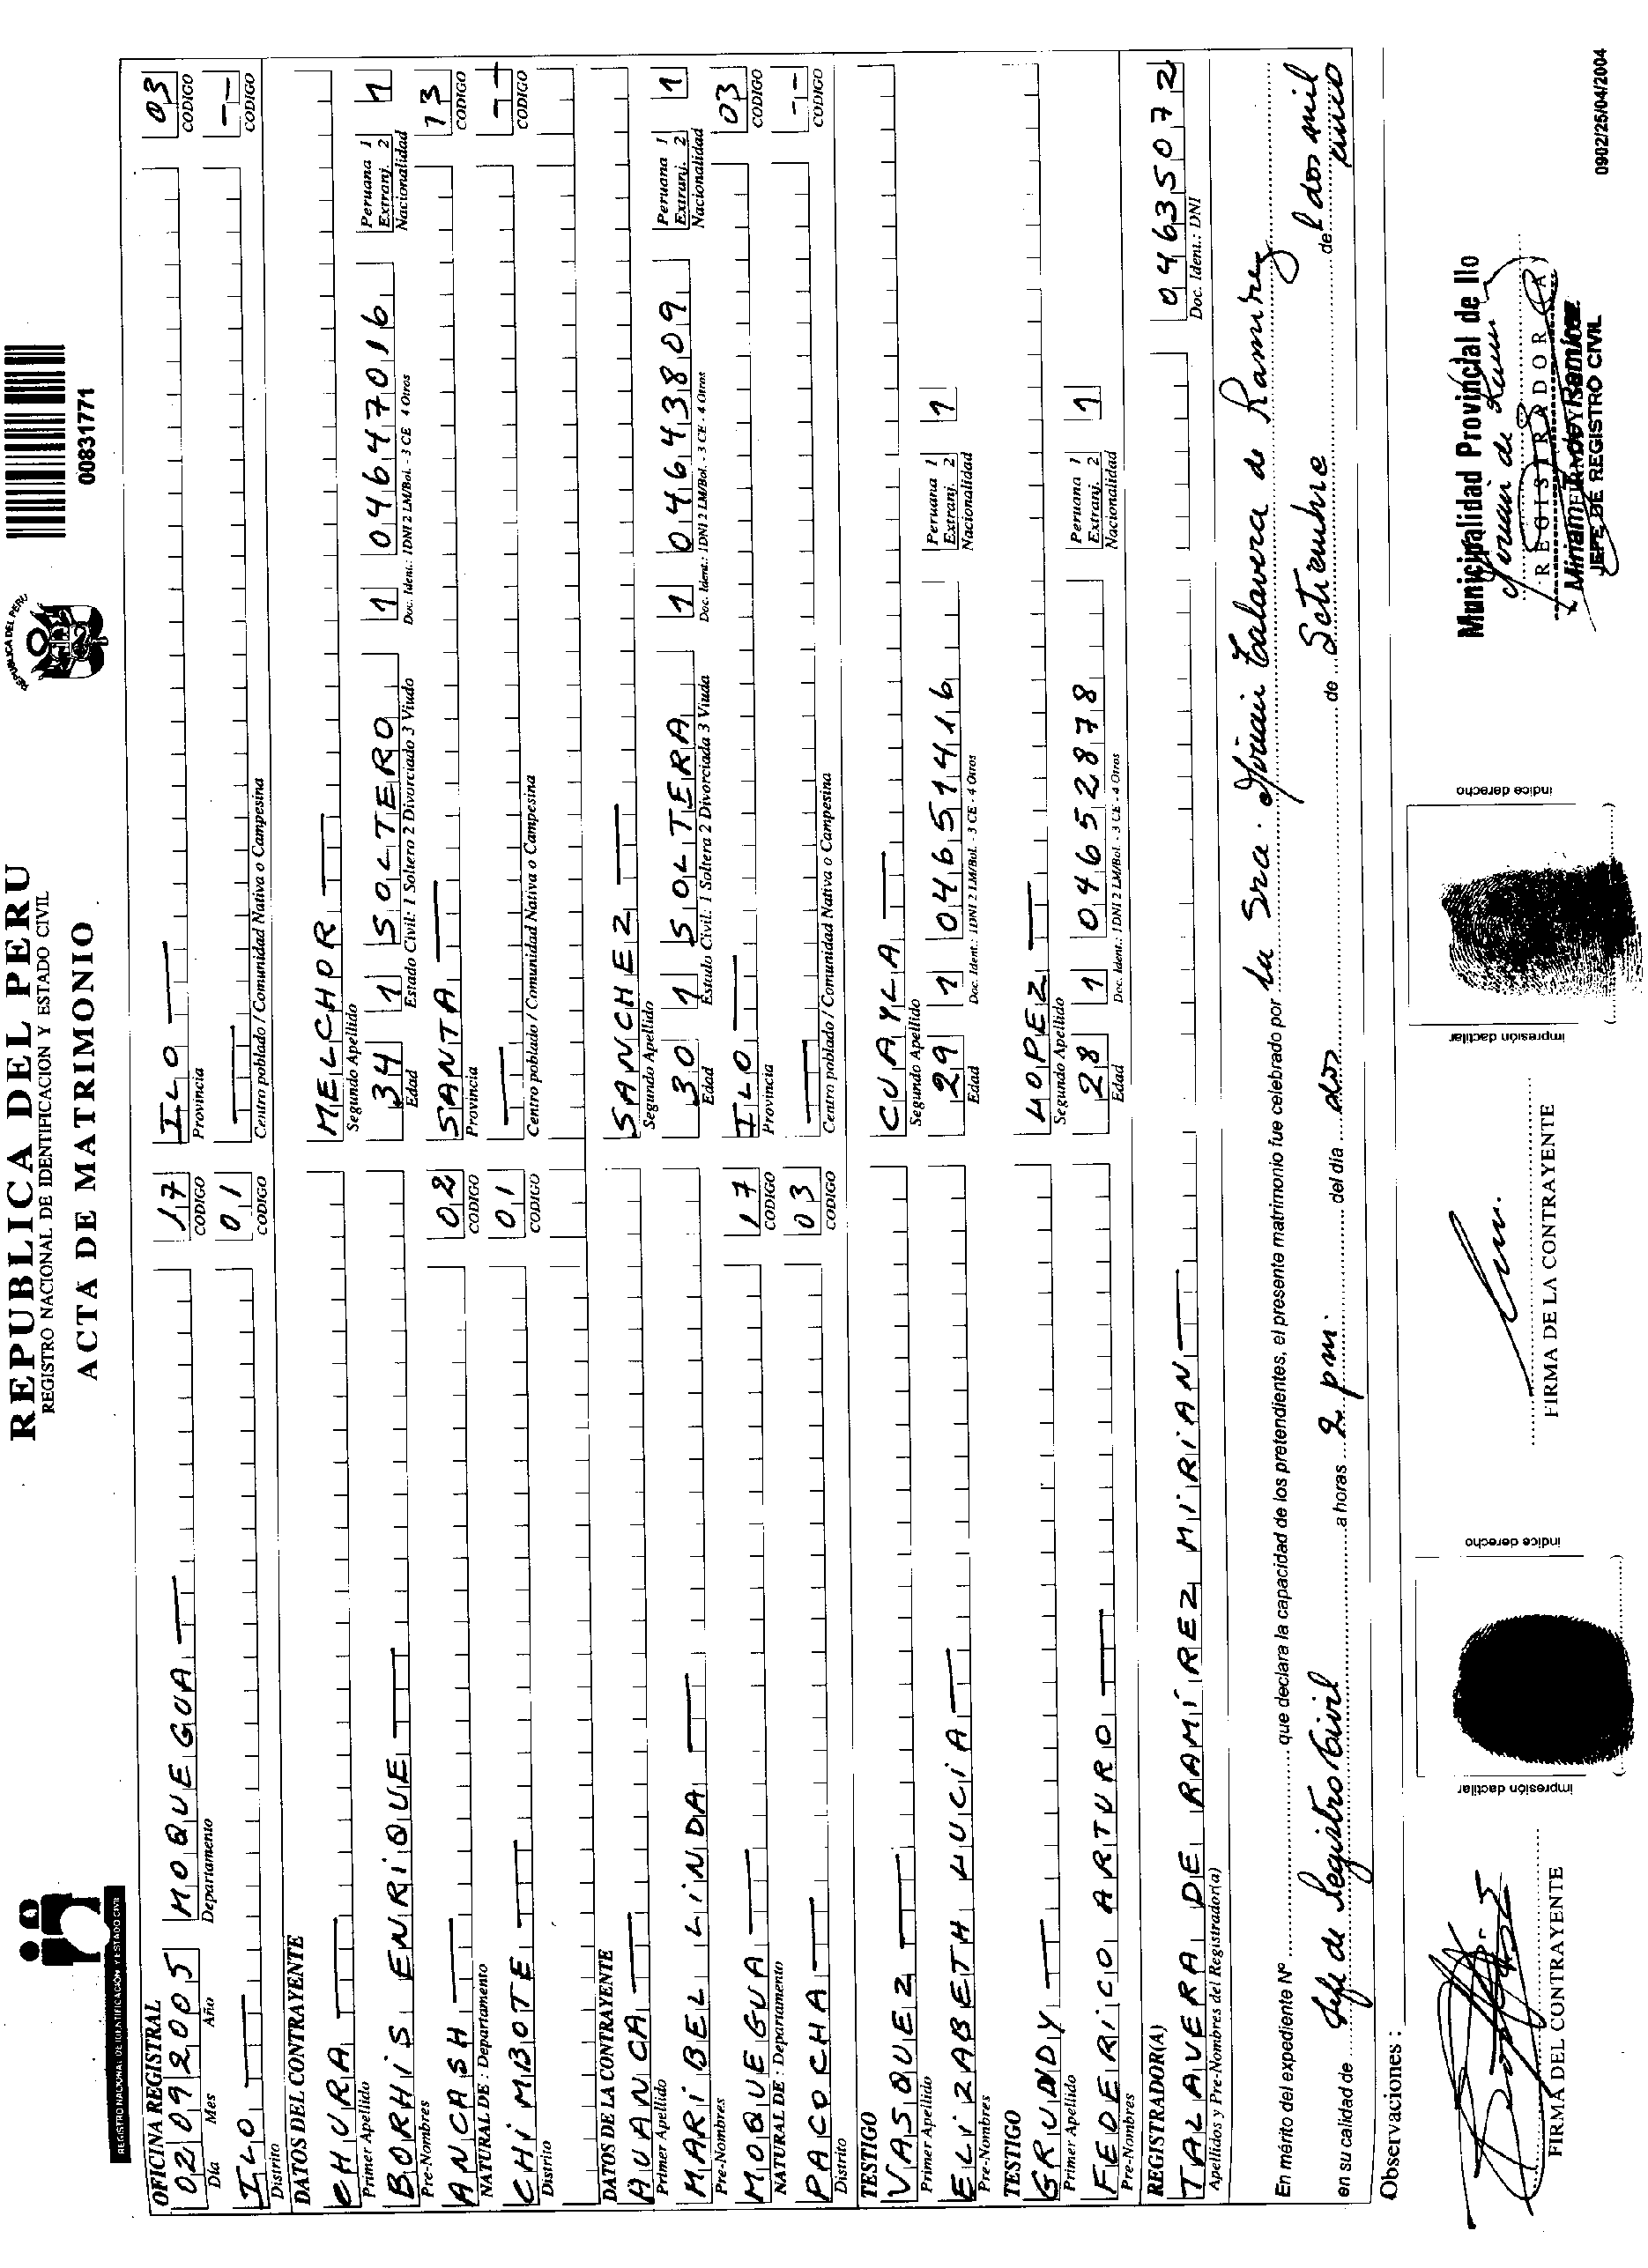 REGISTRO NACIONAL DE IDENTIFICACIÓN Y ESTADO CIVIL
REPUBLICA DEL PERU
REGISTRO NACIONAL DE IDENTIFICACION Y ESTADO CIVIL
ACTA DE MATRIMONIO
REPUBLICA DEL PERU
00831771
OFICINA REGISTRAL
02 09 2005 MOQUEGUA 17 ILO 03
Día Mes Año Departamento CODIGO Provincia CODIGO
ILO 01 --
Distrito CODIGO Centro poblado / Comunidad Nativa o Campesina CODIGO
DATOS DEL CONTRAYENTE
CHURA MELCHOR
Primer Apellido Segundo Apellido
BORHiS ENRiQUE 34 1 SOLTERO 1 04647016 Peruana 1 Extranj. 2 1
Pre-Nombres Edad Estado Civil: 1 Soltero 2 Divorciado 3 Viudo Doc. Ident.: 1DNI 2 LM/Bol. - 3 CE 4 Otros Nacionalidad
ANCASH 02 SANTA 13
NATURAL DE : Departamento CODIGO Provincia CODIGO
CHiMBOTE 01 --
Distrito CODIGO Centro poblado / Comunidad Nativa o Campesina CODIGO
DATOS DE LA CONTRAYENTE
AUANCA SANCHEZ
Primer Apellido Segundo Apellido
MARiBEL LiNDA 30 1 SOLTERA 1 04643809 Peruana 1 Extranj. 2 1
Pre-Nombres Edad Estado Civil: 1 Soltera 2 Divorciada 3 Viuda Doc. Ident.: 1DNI 2 LM/Bol. - 3 CE - 4 Otros Nacionalidad
MOQUEGUA 17 ILO 03
NATURAL DE : Departamento CODIGO Provincia CODIGO
PACOCHA 03 --
Distrito CODIGO Centro poblado / Comunidad Nativa o Campesina CODIGO
TESTIGO
VASQUEZ CUAYLA
Primer Apellido Segundo Apellido
ELiZABETH LUCiA 29 1 04651416 Peruana 1 Extranj. 2 1
Pre-Nombres Edad Doc. Ident.: 1DNI 2 LM/Bol. - 3 CE - 4 Otros Nacionalidad
TESTIGO
GRUNDY LOPEZ
Primer Apellido Segundo Apellido
FEDERiCO ARTURO 28 1 04652878 Peruana 1 Extranj. 2 1
Pre-Nombres Edad Doc. Ident.: 1DNI 2 LM/Bol. - 3 CE - 4 Otros Nacionalidad
REGISTRADOR(A)
TALAVERA DE RAMÍREZ MiRiAN 04635072
Apellidos y Pre-Nombres del Registrador(a) Doc. Ident.: DNI
En mérito del expediente Nº que declara la capacidad de los pretendientes, el presente matrimonio fue celebrado por la Sra. Mirian Talavera de Ramirez
en su calidad de Jefe de Registro Civil a horas 2 pm. del día dos de Setiembre del dos mil cinco
Observaciones :
FIRMA DEL CONTRAYENTE
impresión dactilar
indice derecho
FIRMA DE LA CONTRAYENTE
impresión dactilar
indice derecho
Municipalidad Provincial de Ilo
REGISTRADOR (A)
JEFE DE REGISTRO CIVIL
0902/25/04/2004